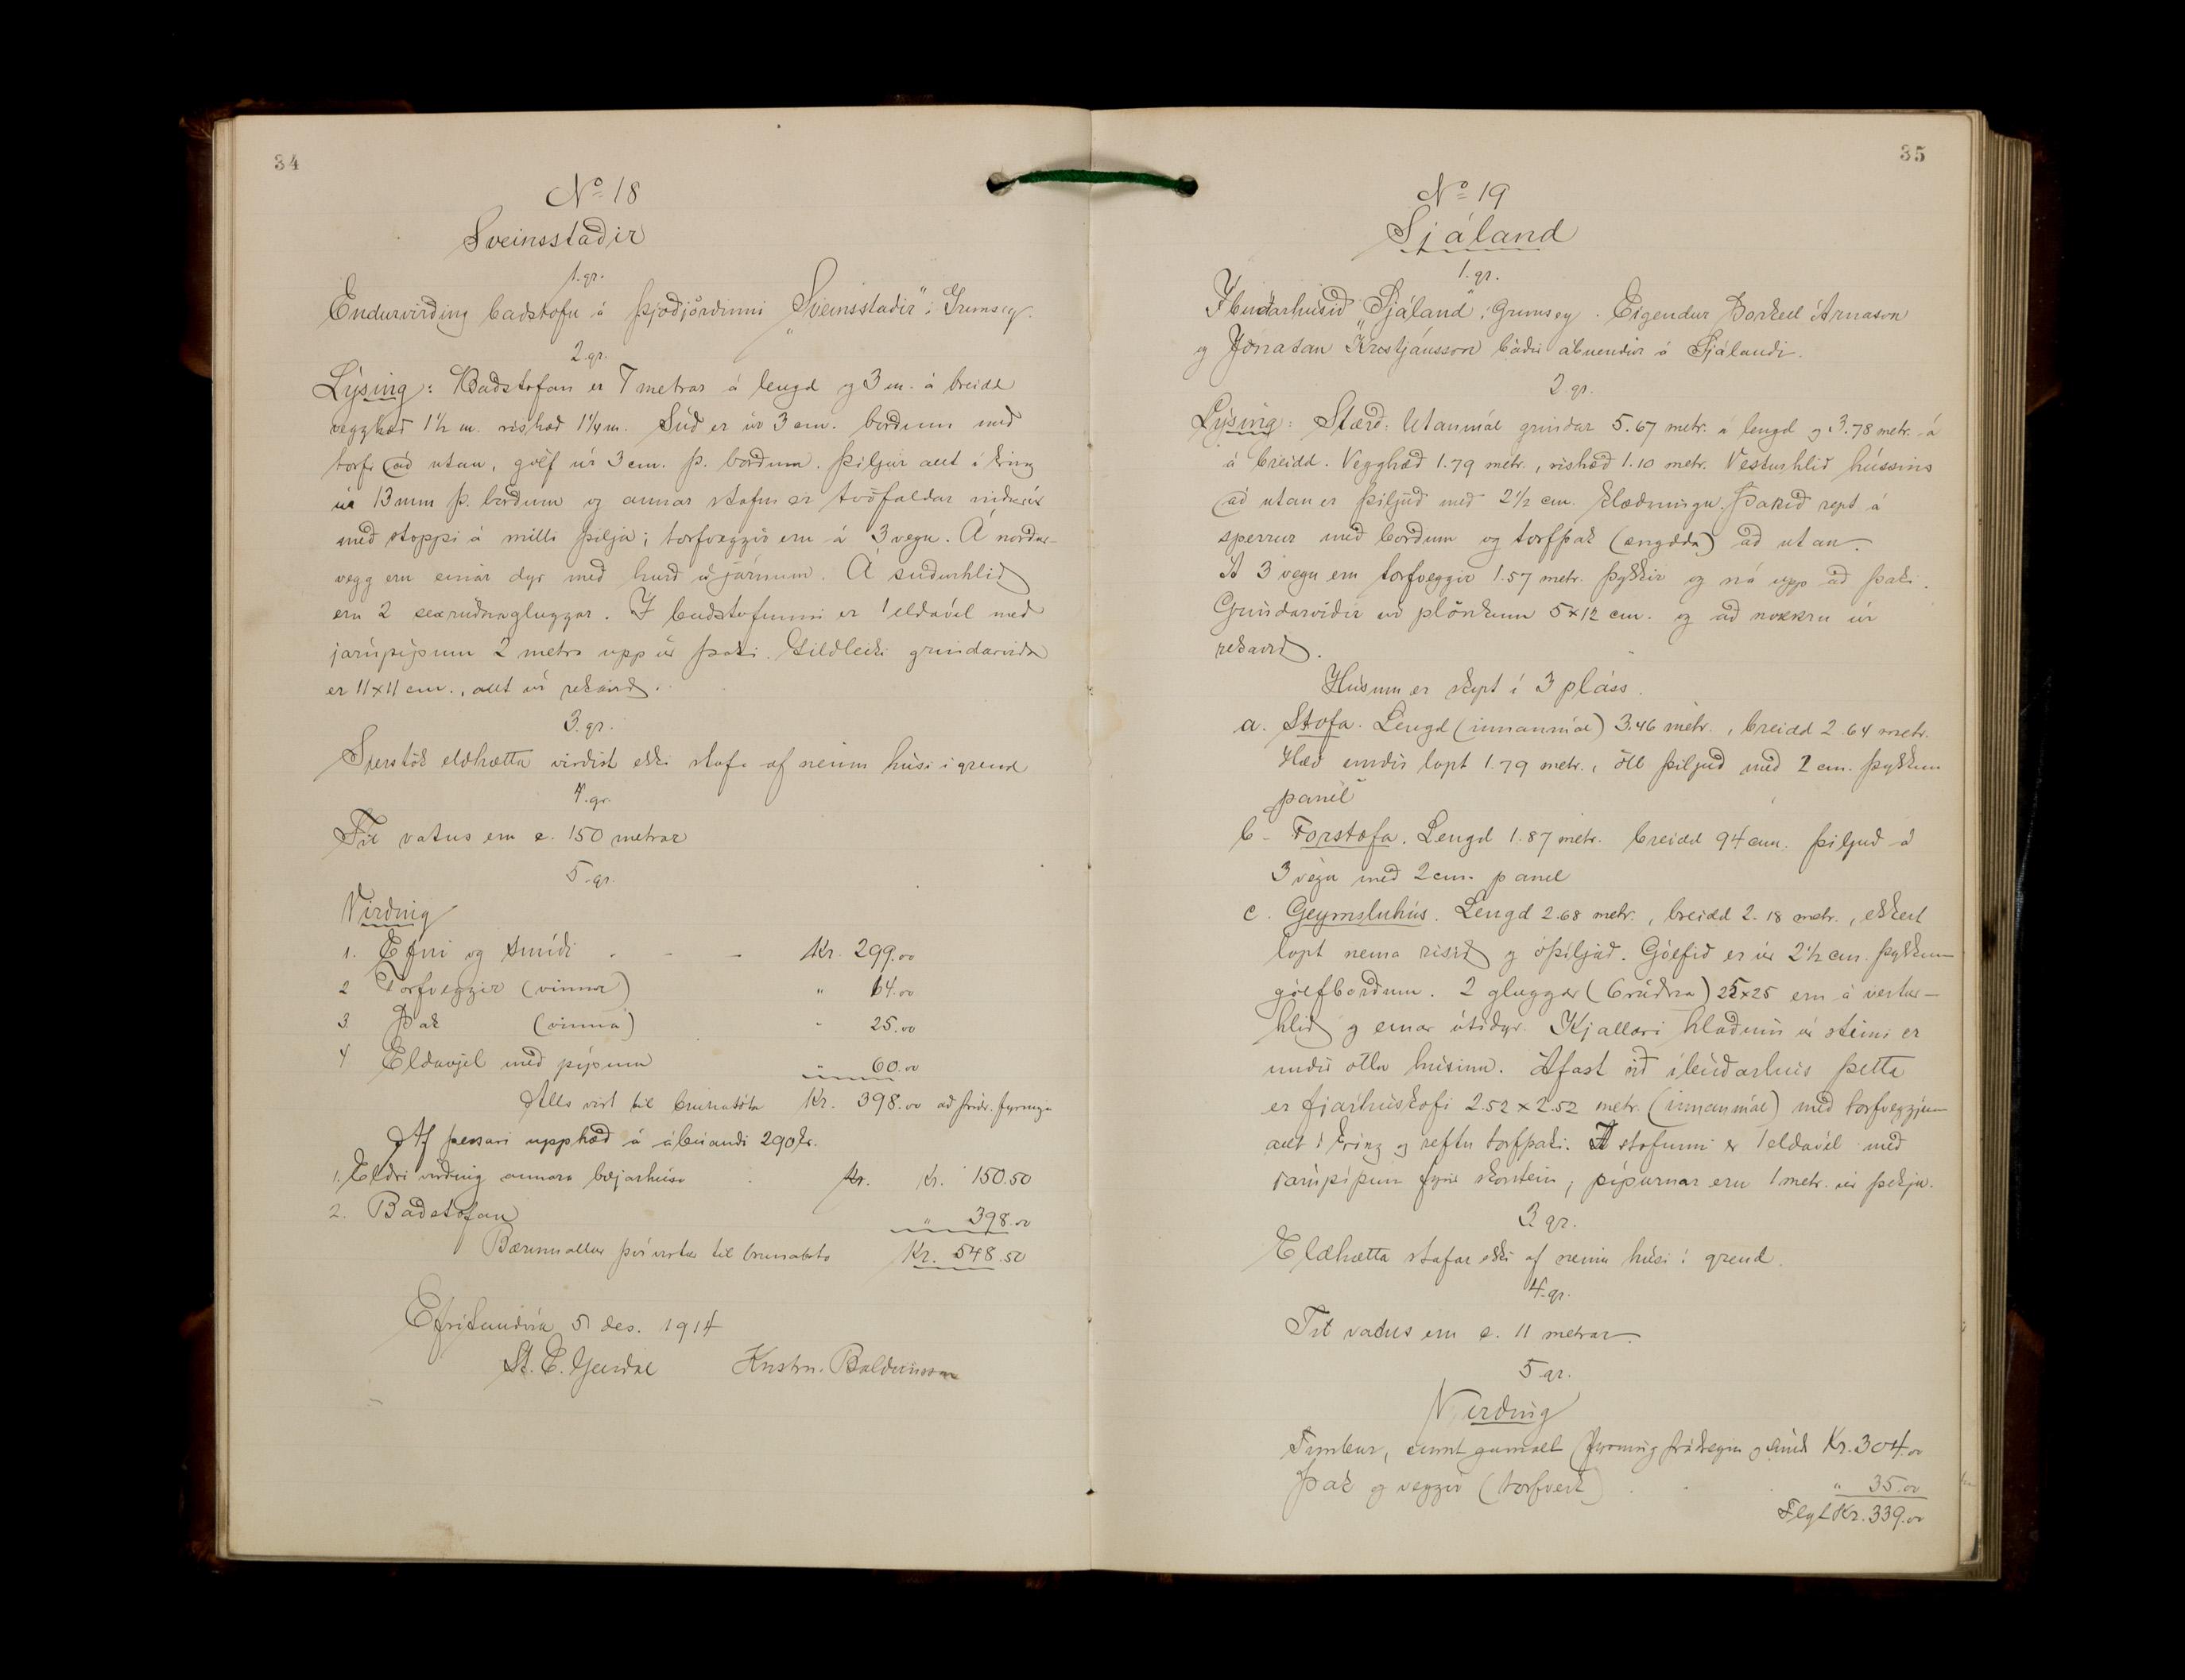 34
No 18
Sveinsstaðir
1. gr.
Endurvirðing baðstofu á þjóðjörðinni „Sveinsstaðir" í Grímsey.
2. gr.
Lýsing: Baðstofan er 7 metrar á lengd og 3 m. á breidd
vegghæð 1½ m. rishæð 1¼ m. Súð er úr 3 cm. borðum með
torfi að utan, gólf úr 3 cm. þ. borðum. Þiljur allt í kring
úr 13 mm þ. borðum og annar stafn er tvöfaldur
með stoppi á milli þilja; torfveggir eru á 3 vegu. Á norður-
vegg eru einar dyr með hurð á járnum. Á suðurhlið
eru 2 sexrúðugluggar. Í baðstofunni er 1 eldavél með
járnpípum 2 metra upp úr þaki. Gildleiki grindarviða
er 11x11 cm., allt úr rekavið.
3. gr.
Sjerstök eldhætta virðist ekki stafa af neinu húsi í grend
4. gr.
Til vatns eru c. 150 metrar
5. gr.
Virðing
1. Efni og smíði - - - Kr. 299.00
2 Torfveggir (vinna) " 64.00
3. Þak (vinna) " 25.00
4 Eldavjel með pípum " 60.00
Alls virt til brunabóta Kr. 398.00 að frádr. fyrningu
Af þessari upphæð á ábúandi 290 kr.
1. Eldri virðing annara bæjarhúsa Kr. Kr. 150.50
2. Baðstofan " 398.00
Bærinn allur því virtur til brunabóta Kr. 548.50
Efrisandvík 5 des. 1914
St. E. Gerdal Kristin. Baldvinsson
35
No 19
Sjáland
1. gr.
Íbúðarhúsið „Sjáland" í Grímsey. Eigendur Þorkell Árnason
og Jónatan Kristjánsson báðir ábúendur á Sjálandi.
2 gr.
Lýsing: Stærð: Utanmál grindar 5.67 metr. á lengd og 3.78 metr. á
á breidd. Vegghæð 1.79 metr., rishæð 1.10 metr. Vesturhlið hússins
að utan er þiljuð með 2½ cm. klæðningu. Þakið rept á
sperrur með borðum og torfþak að utan.
Á 3 vegu eru torfveggir 1.57 metr. þykkir og ná upp að þaki.
Grindarviðir úr plönkum 5x12 cm. og að nokkru úr
rekavið.
Húsinu er skipt í 3 pláss.
a. Stofa. Lengd (innanmál) 3.46 metr., breidd 2.64 metr.
Hæð undir lopt 1.79 metr., öll þiljuð með 2 cm. þykkum
panel
b - Forstofa. Lengd 1.87 metr. breidd 94 cm. þiljuð á
3 vegu með 2 cm. panel
c. Geymsluhús. Lengd 2.68 metr., breidd 2.18 metr., ekkert
lopt nema risið og óþiljað. Gólfið er úr 2½ cm. þykkum
gólfborðum. 2 gluggar (6 rúðra) 25x25 eru á vestur-
hlið og einar útidyr. Kjallari hlaðinn úr steini er
undir öllu húsinu. Áfast við íbúðarhús þetta
er fjárhúskofi 2.52 x 2.52 metr. (innanmál) með torfveggjum
allt í kring og reftu torfþaki. Í stofunni er 1 eldavél með
járnpípum fyrir skorstein, pípurnar eru 1 metr. úr þekju.
3. gr.
Eldhætta stafar ekki af neinu húsi í grend.
4. gr.
Til vatns eru c. 11 metrar.
5 gr.
Virðing
Timbur, sumt gamalt (fyrning frádregin og smíði Kr. 304.00
Þak og veggir (torfverk) " 35.00
Flyt Kr. 339.00